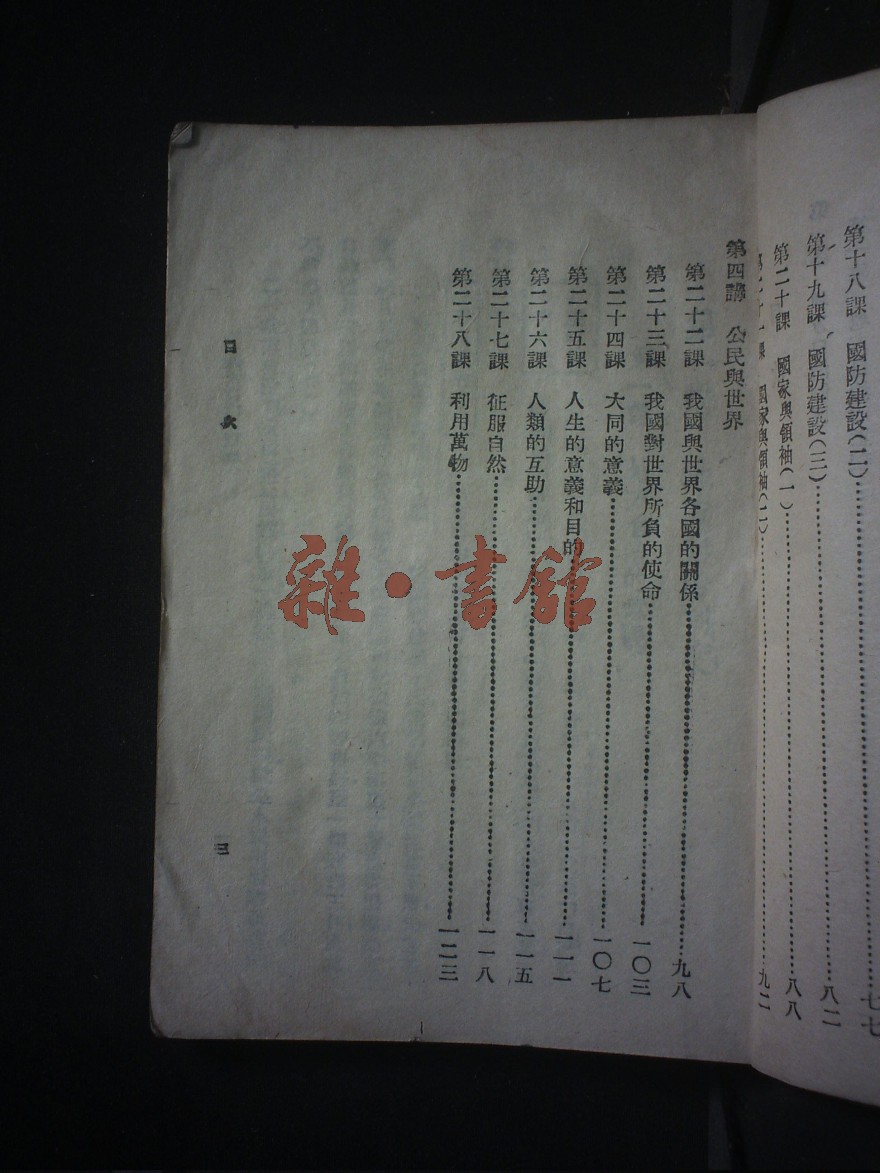 第十八課　國防建設(二)……七七
第十九課　國防建設(三)……八二
第二十課　國家與領袖(一)……八八
第二十一課　國家與領袖(二)……九二
第四講　公民與世界
第二十二課　我國與世界各國的關係……九八
第二十三課　我國對世界所負的使命……一〇三
第二十四課　大同的意義……一〇七
第二十五課　人生的意義和目的……一一一
第二十六課　人類的互助……一一五
第二十七課　征服自然……一一八
第二十八課　利用萬物……一二三
目次
三
雜·書館